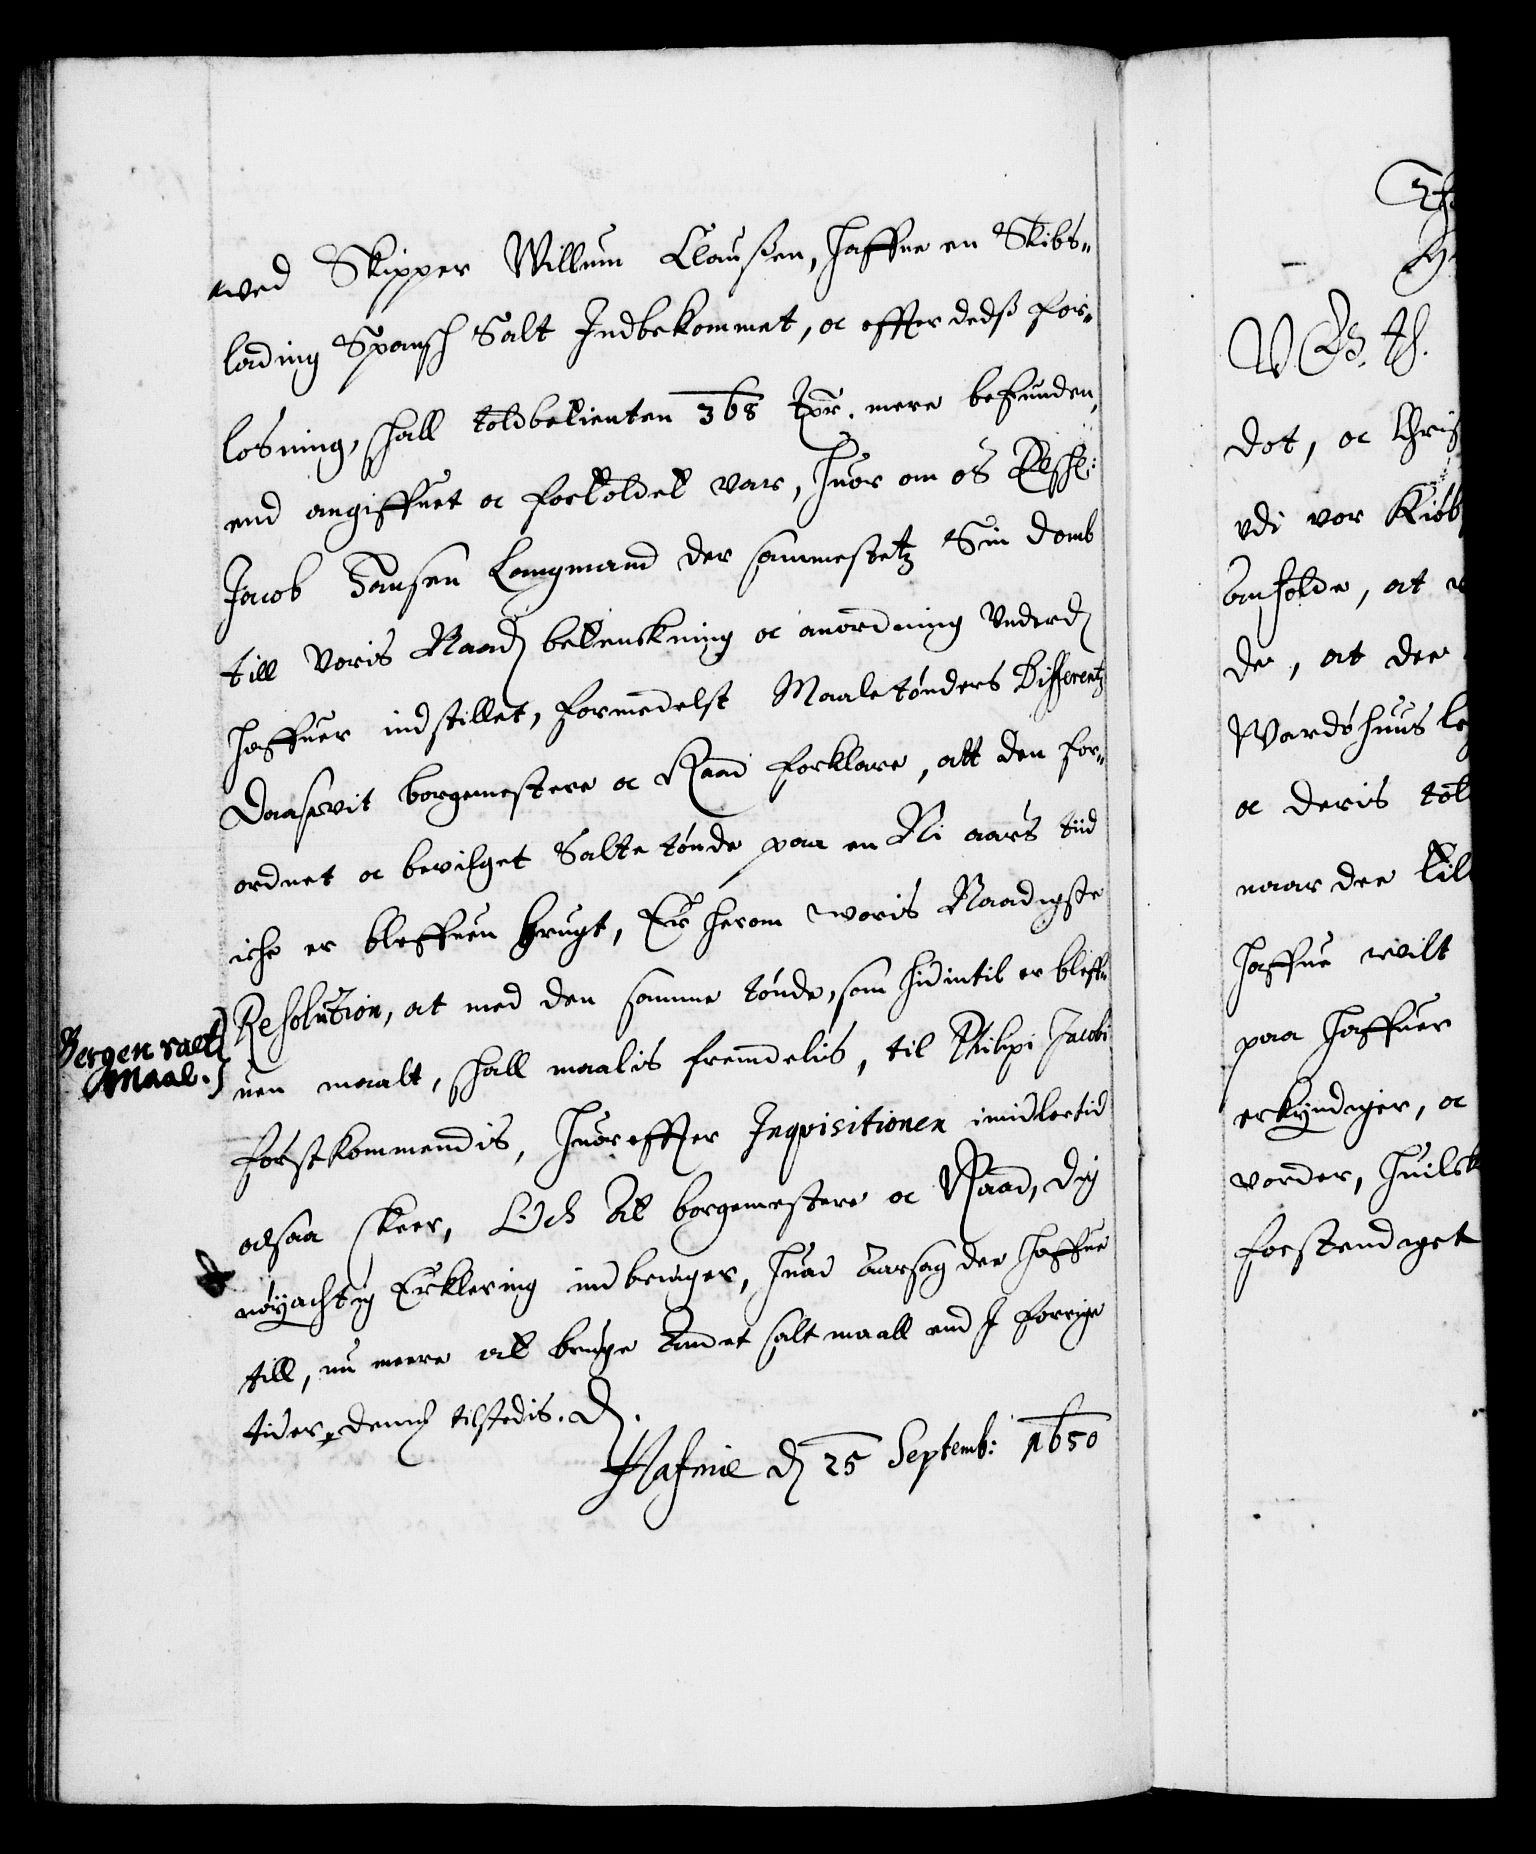 wed Skipper Willum Claußen, haffue en Skibs-
lading Spansch Salt Indbekommet, oc effter dedß for-
losning, schall toldbetienten 368 tør. mere befunden,
end angiffuet oc fortoldet var, huor om oß Elschl:
Jacob Hansen Langmand der sammestetz Sin domb
till Voris Naadh betenckning oc anordning Underdh
haffuer indstillet, formedelst Maaletønders Differentz
Saasom borgemestere oc Raad forklare, att den for-
ordnet oc bevilget Salte tønde paa en Ni aars tiid
iche er bleffuen brugt, Er herom woris Naadigste
Resolution, at med den samme tønde, som hidintil er bleff-
Bergen salt
Maal.
uen maalt, schall maalis fremdelis, til Philipi Jacobi
førstkommendis, huoreffter Inqvisitionen imidlertid
ochsaa skeer, Och At borgemestere oc Raad, dig
nøyachtig Erklering indbringer, huad Aarsag dee haffue
till, nu meere at bruge Andet salt maall end I forrige
tider dennem tilstedis. D.
Hafniæ dh 25 Septemb: 1650
V G. th.
dot, oc Chris
vdi vor Kiøb
anholde, at
de, at dee
Wardøhuus le
oc deris tol
naar dee til
haffue wilt
paa haffuer
erkyndiger, oc
vorder, huilck
forstendiget